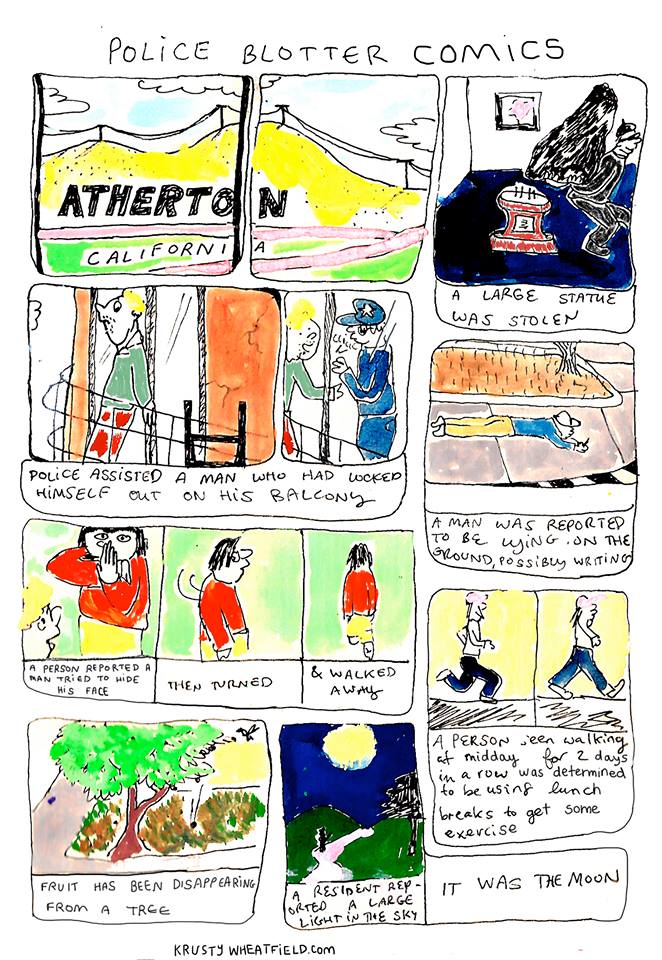 POLICE BLOTTER COMICS
ATHERTON
CALIFORNIA
A LARGE STATUE
WAS STOLEN
POLICE ASSISTED A MAN WHO HAD LOCKED
HIMSELF OUT ON HIS BALCONY
A MAN WAS REPORTED
TO BE LYING ON THE
GROUND, POSSIBLY WRITING
A PERSON REPORTED A
MAN TRIED TO HIDE
HIS FACE
THEN TURNED
& WALKED
AWAY
A PERSON seen walking
at midday for 2 days
in a row was determined
to be using lunch
breaks to get some
exercise
FRUIT HAS BEEN DISAPPEARING
FROM A TREE
A RESIDENT REP-
ORTED A LARGE
LIGHT IN THE SKY
IT WAS THE MOON
KRUSTY WHEATFIELD.COM